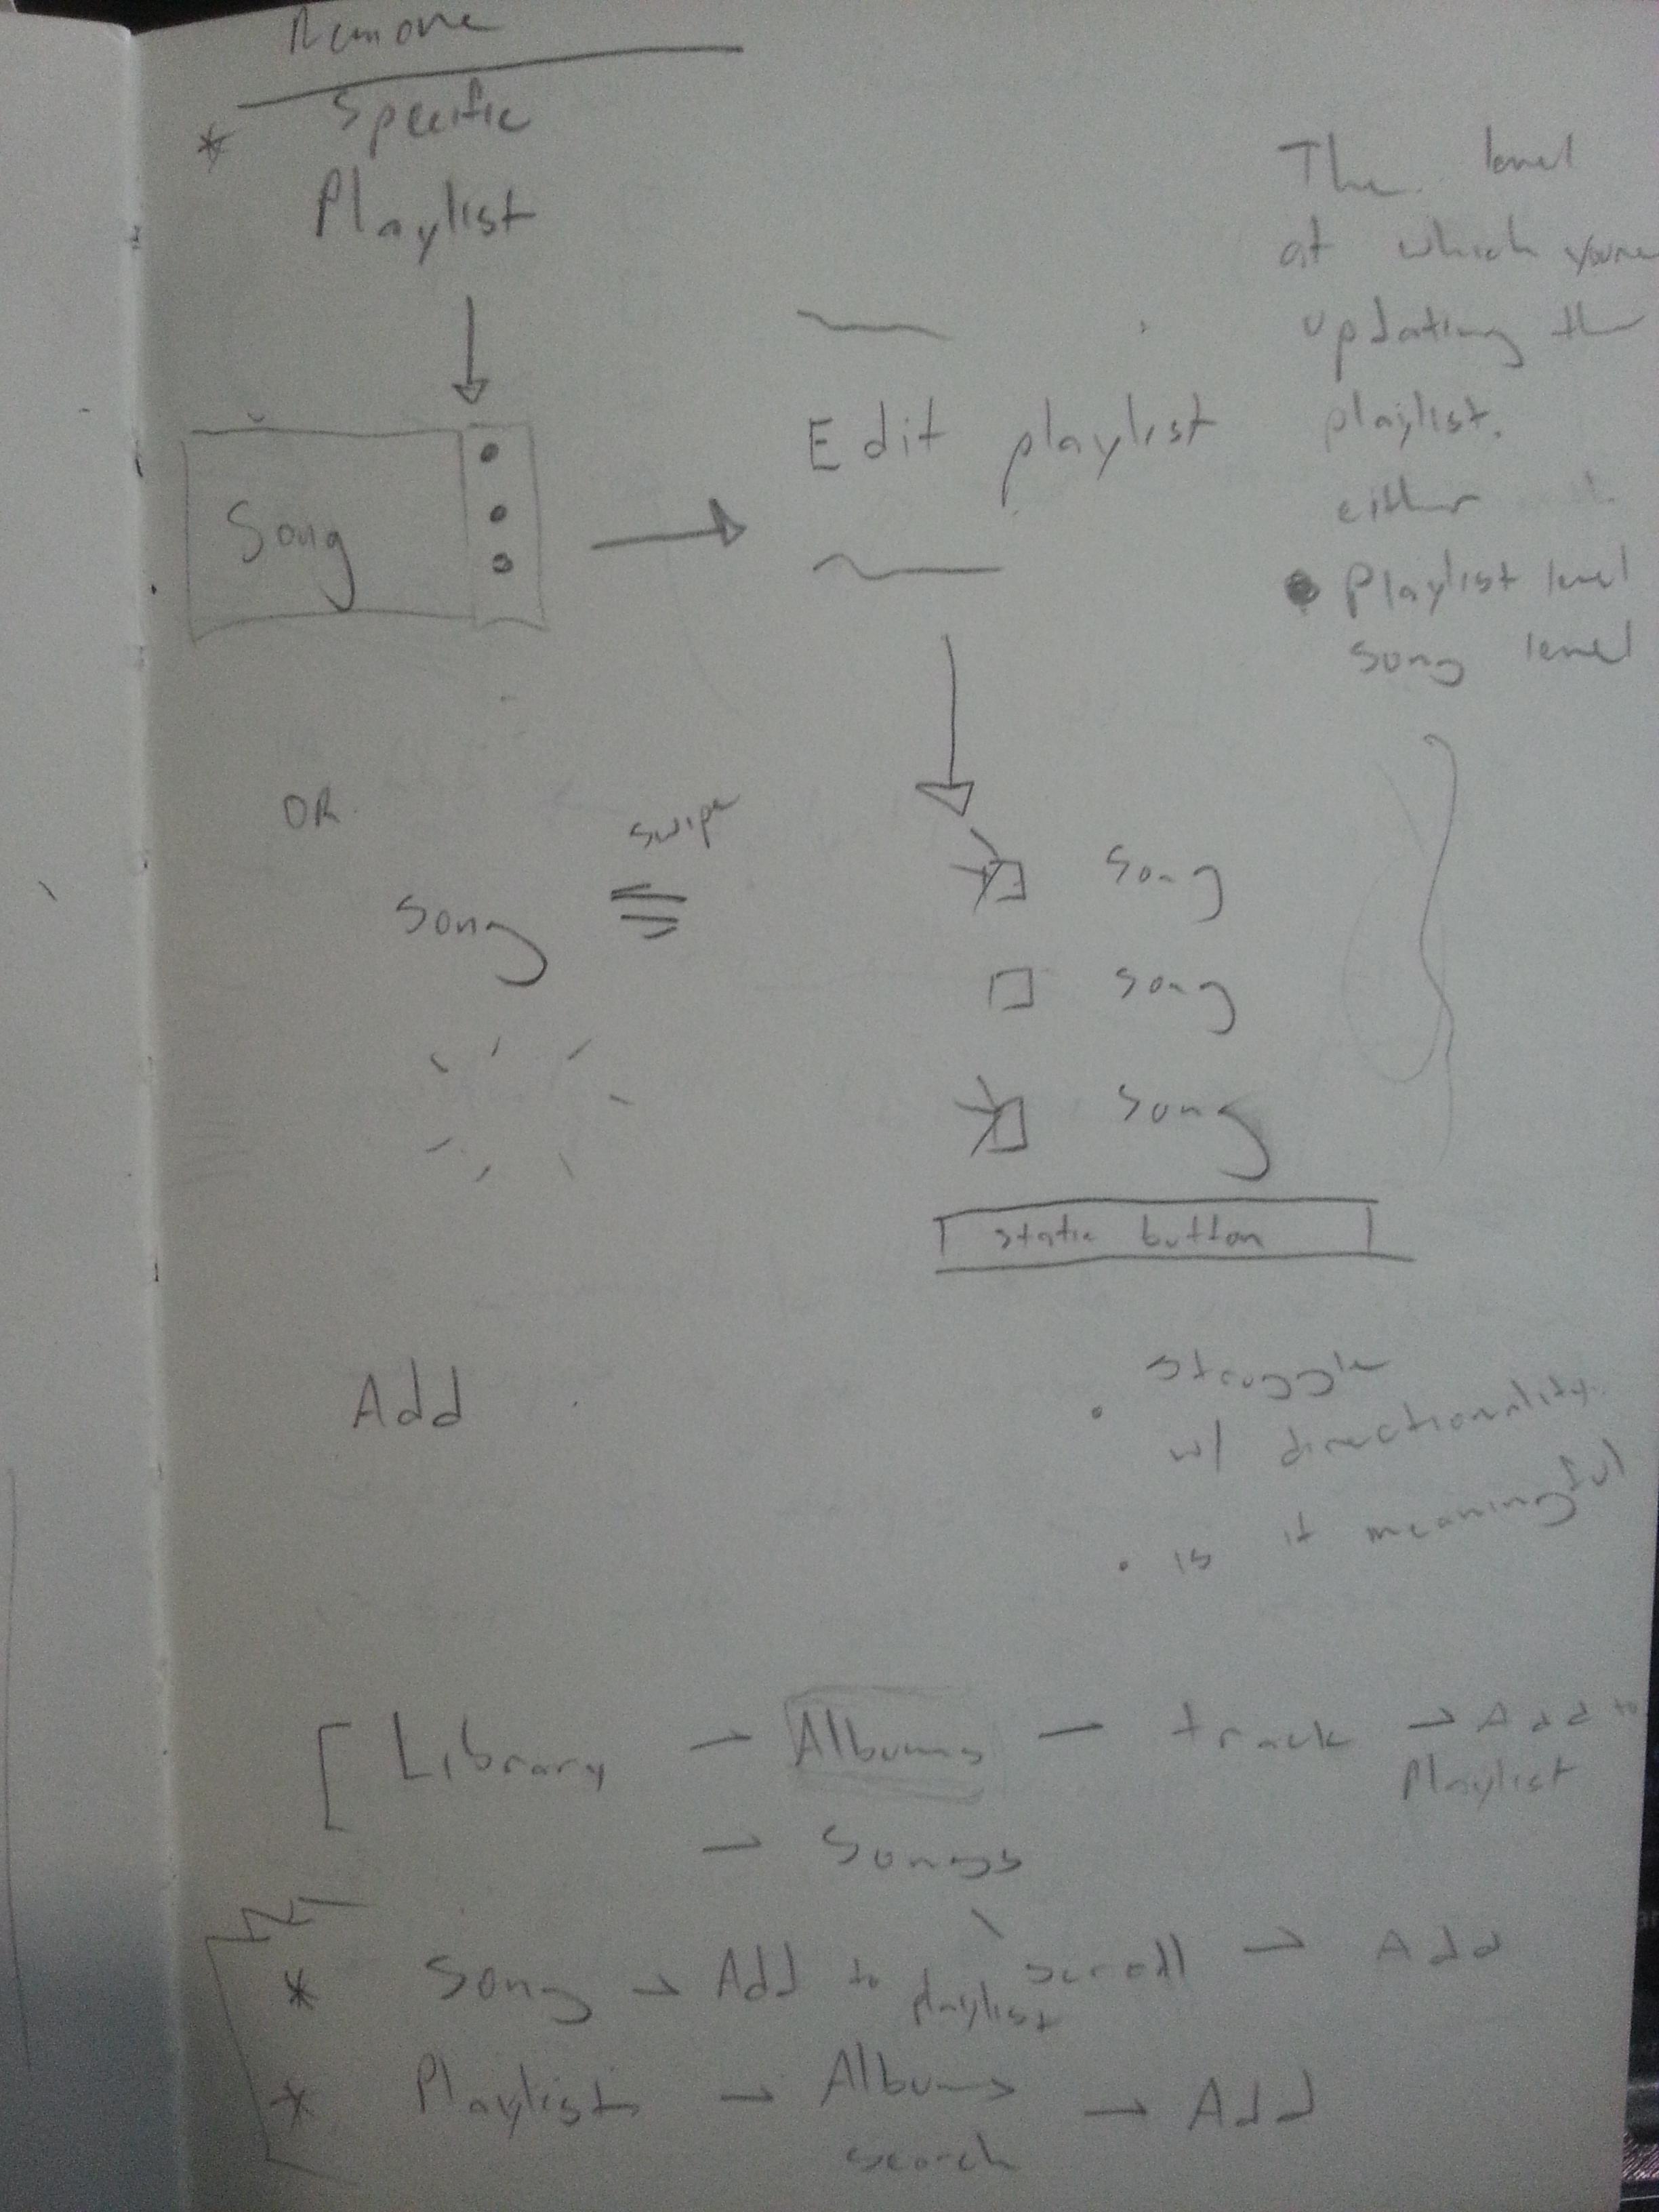 Remove
* Specific
Playlist
Song
Edit playlist
The level
at which youre
updating the
playlist.
either
• Playlist level
song level
OR
swipe
Song
Song
Song
Song
static button
Add
• struggle
w/ directionality.
• is it meaningful
Library → Albums → track → Add to
Playlist
→ Songs
* Song → Add to playlist scroll → Add
* Playlists → Albums → Add
search